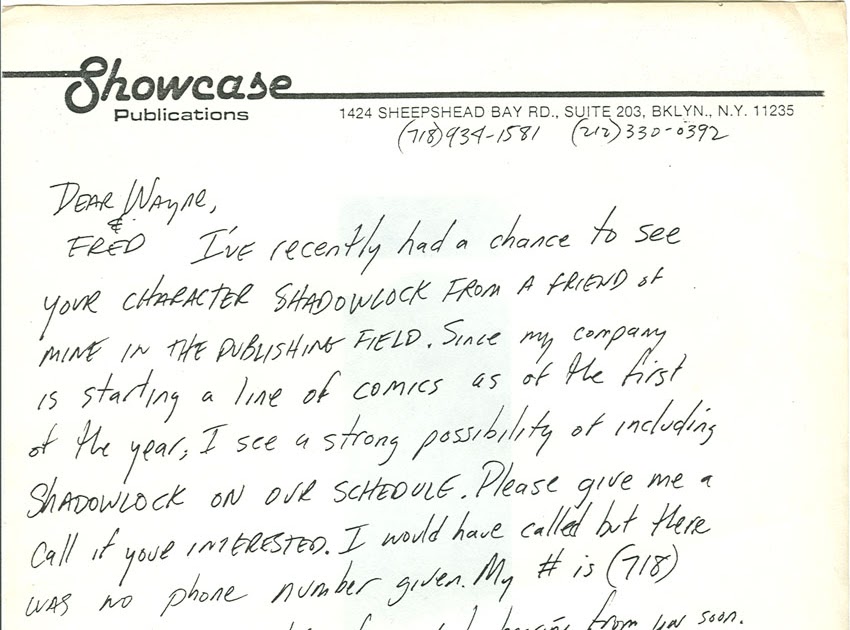 Showcase
Publications
1424 SHEEPSHEAD BAY RD., SUITE 203, BKLYN., N.Y. 11235
(718) 934-1581 (212) 330-0392
DEAR Wayne,
&
FRED I'VE recently had a chance to see
YOUR CHARACTER SHADOWLOCK FROM A FRIEND of
MINE IN THE PUBLISHING FIELD. Since my company
is starting a line of comics as of the first
of the year, I see a strong possibility of including
SHADOWLOCK ON OUR SCHEDULE. Please give me a
call if your INTERESTED. I would have called but there
WAS no phone number given. My # is (718)
from you soon.